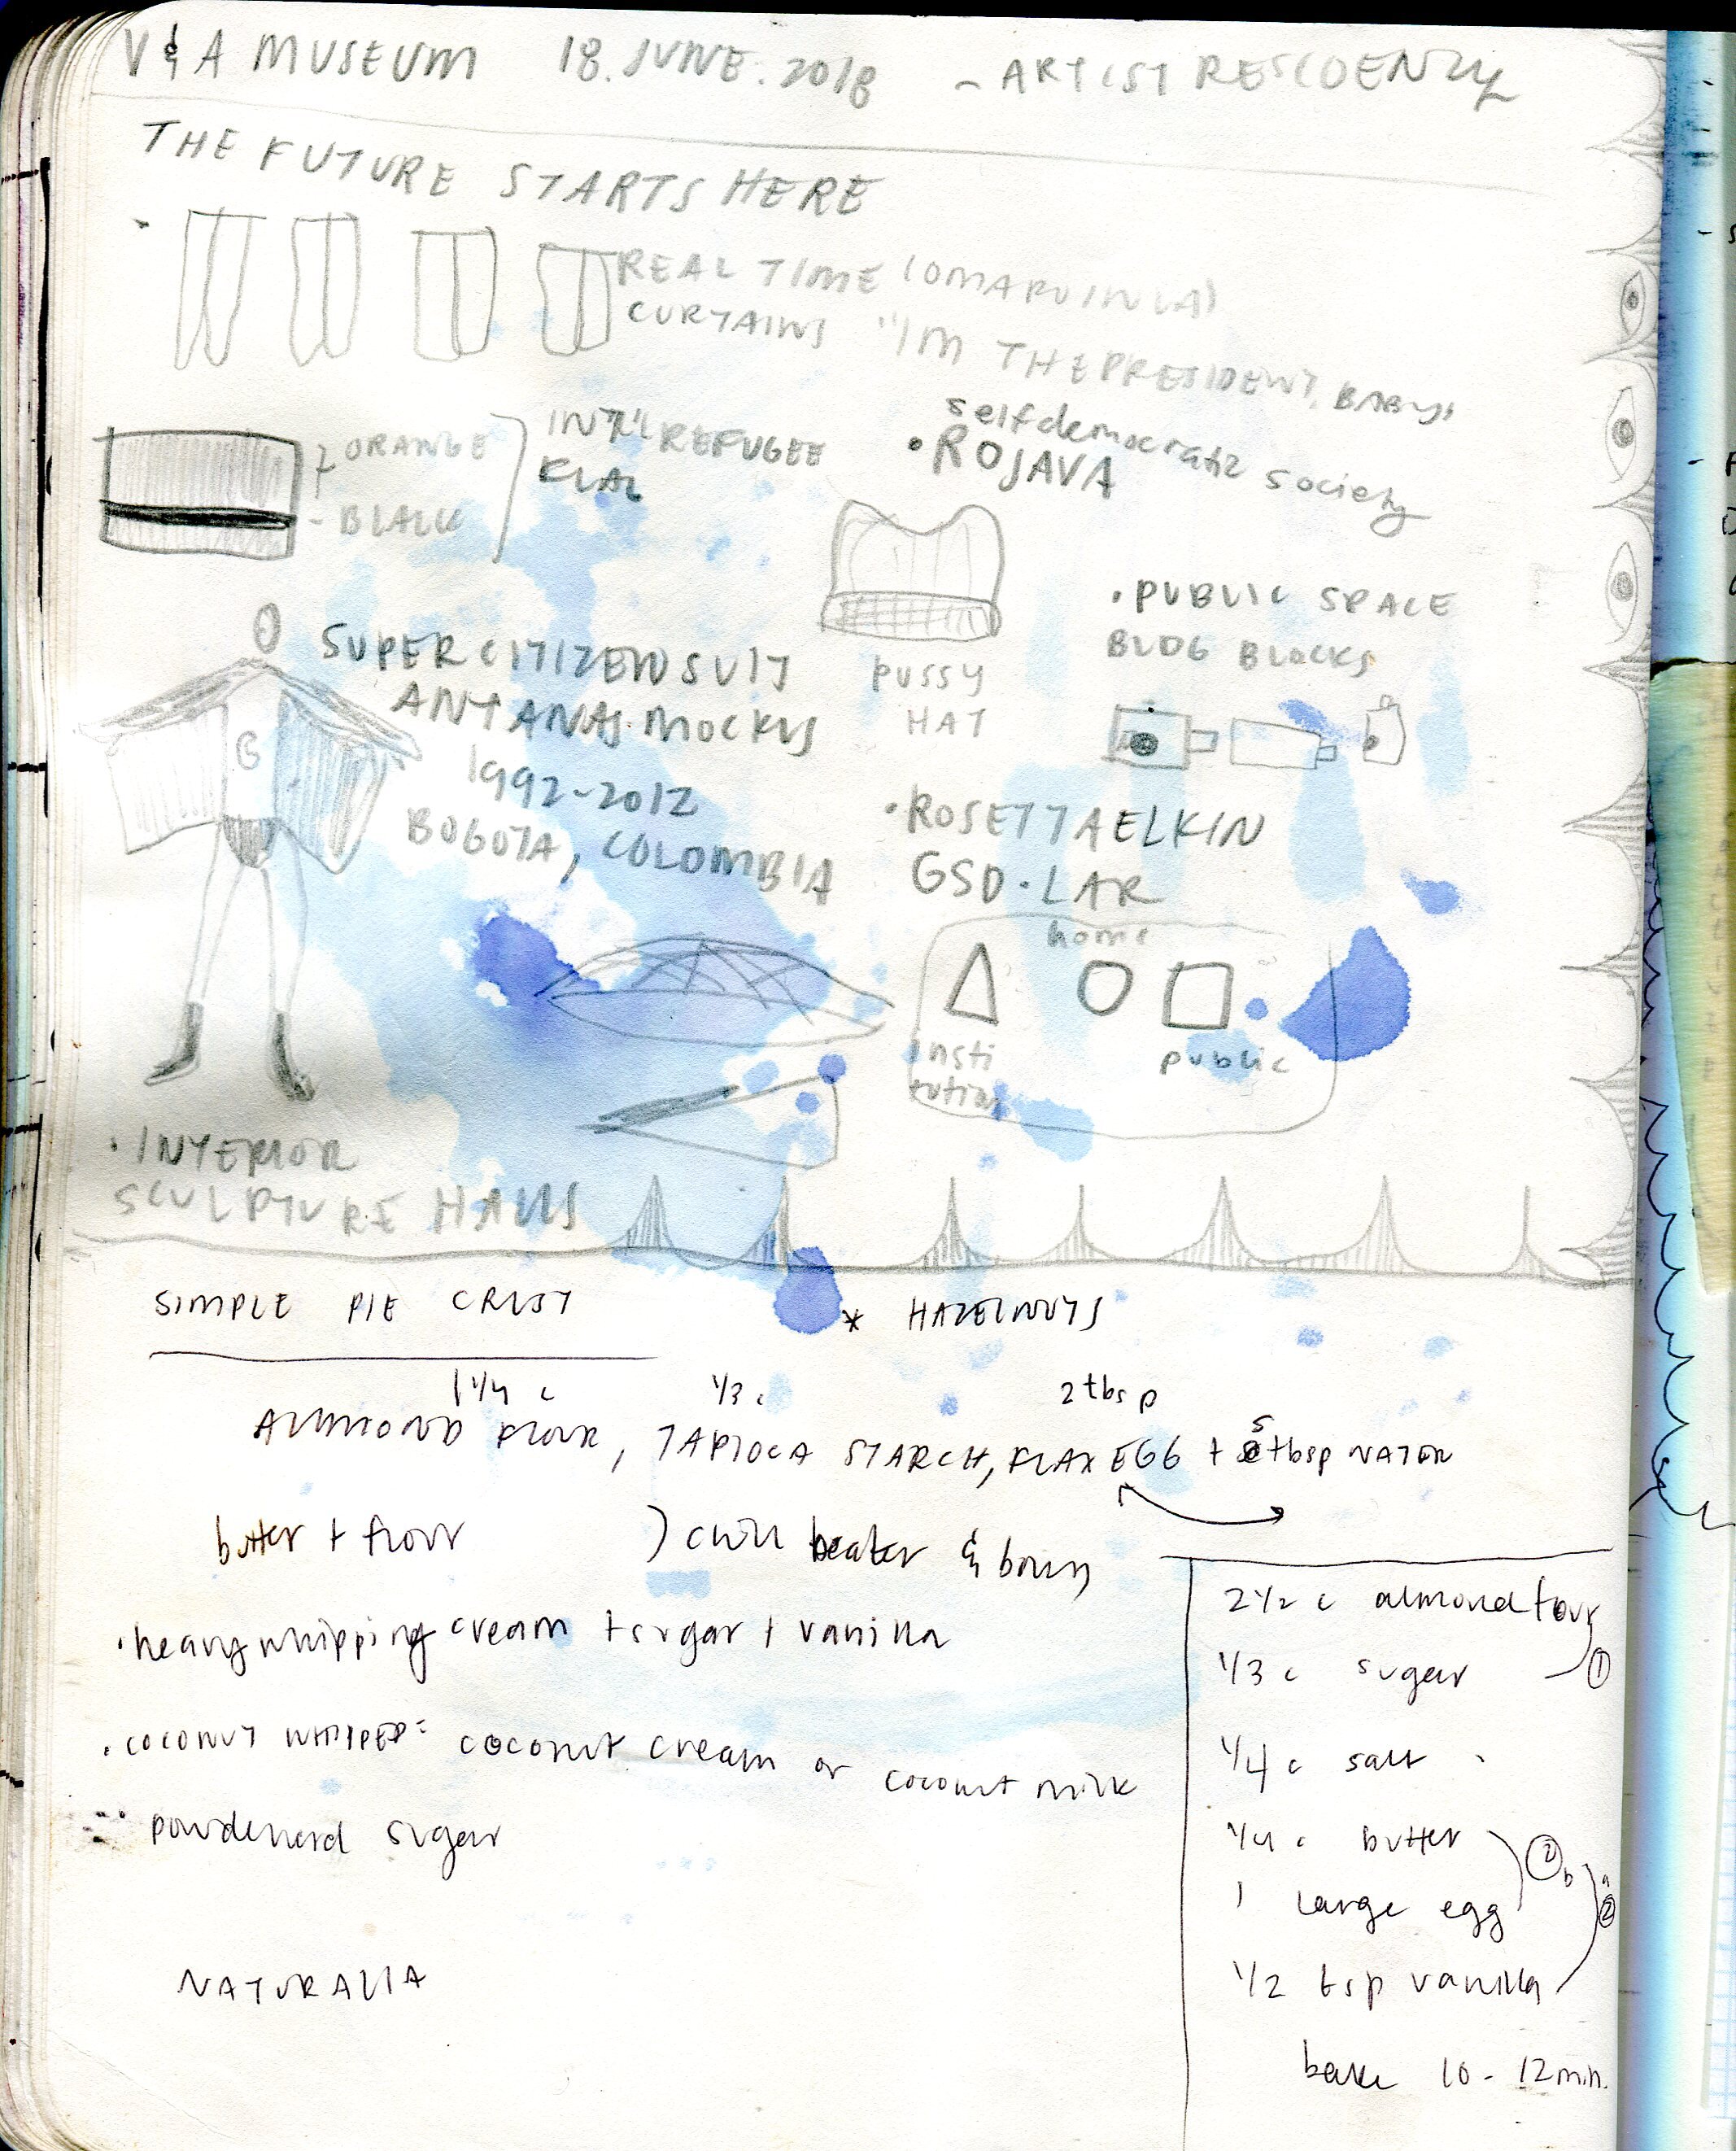 V & A MUSEUM 18.JUNE.2018 - ARTIST RESIDENCY
THE FUTURE STARTS HERE
REAL TIME
CURTAINS "I'M THE PRESIDENT, BABY"
ORANGE
BLACK
INT'L REFUGEE
FLAG
self democratic society
• ROJAVA
PUSSY
HAT
• PUBLIC SPACE
BLDG BLOCKS
SUPER CITIZEN SUIT
ANTANAS MOCKUS
1992-2012
BOGOTA, COLOMBIA
• ROSETTA ELKIN
GSD • LAR
home
insti
tution
public
• INTERIOR
SCULPTURE HALLS
SIMPLE PIE CRUST * HAZELNUTS
1 1/4 c 1/3 c 2 tbsp
ALMOND FLOUR, TAPIOCA STARCH, FLAX EGG + 5 tbsp WATER
butter + flour ) chill beater & bowl
• heavy whipping cream + sugar + vanilla
• COCONUT WHIPPED: coconut cream or coconut milk
powdered sugar
NATURALIA
2 1/2 c almond flour
1/3 c sugar 1
1/4 c salt
1/4 c butter 2 b
1 large egg a 2
1/2 tsp vanilla
bake 10 - 12 min.